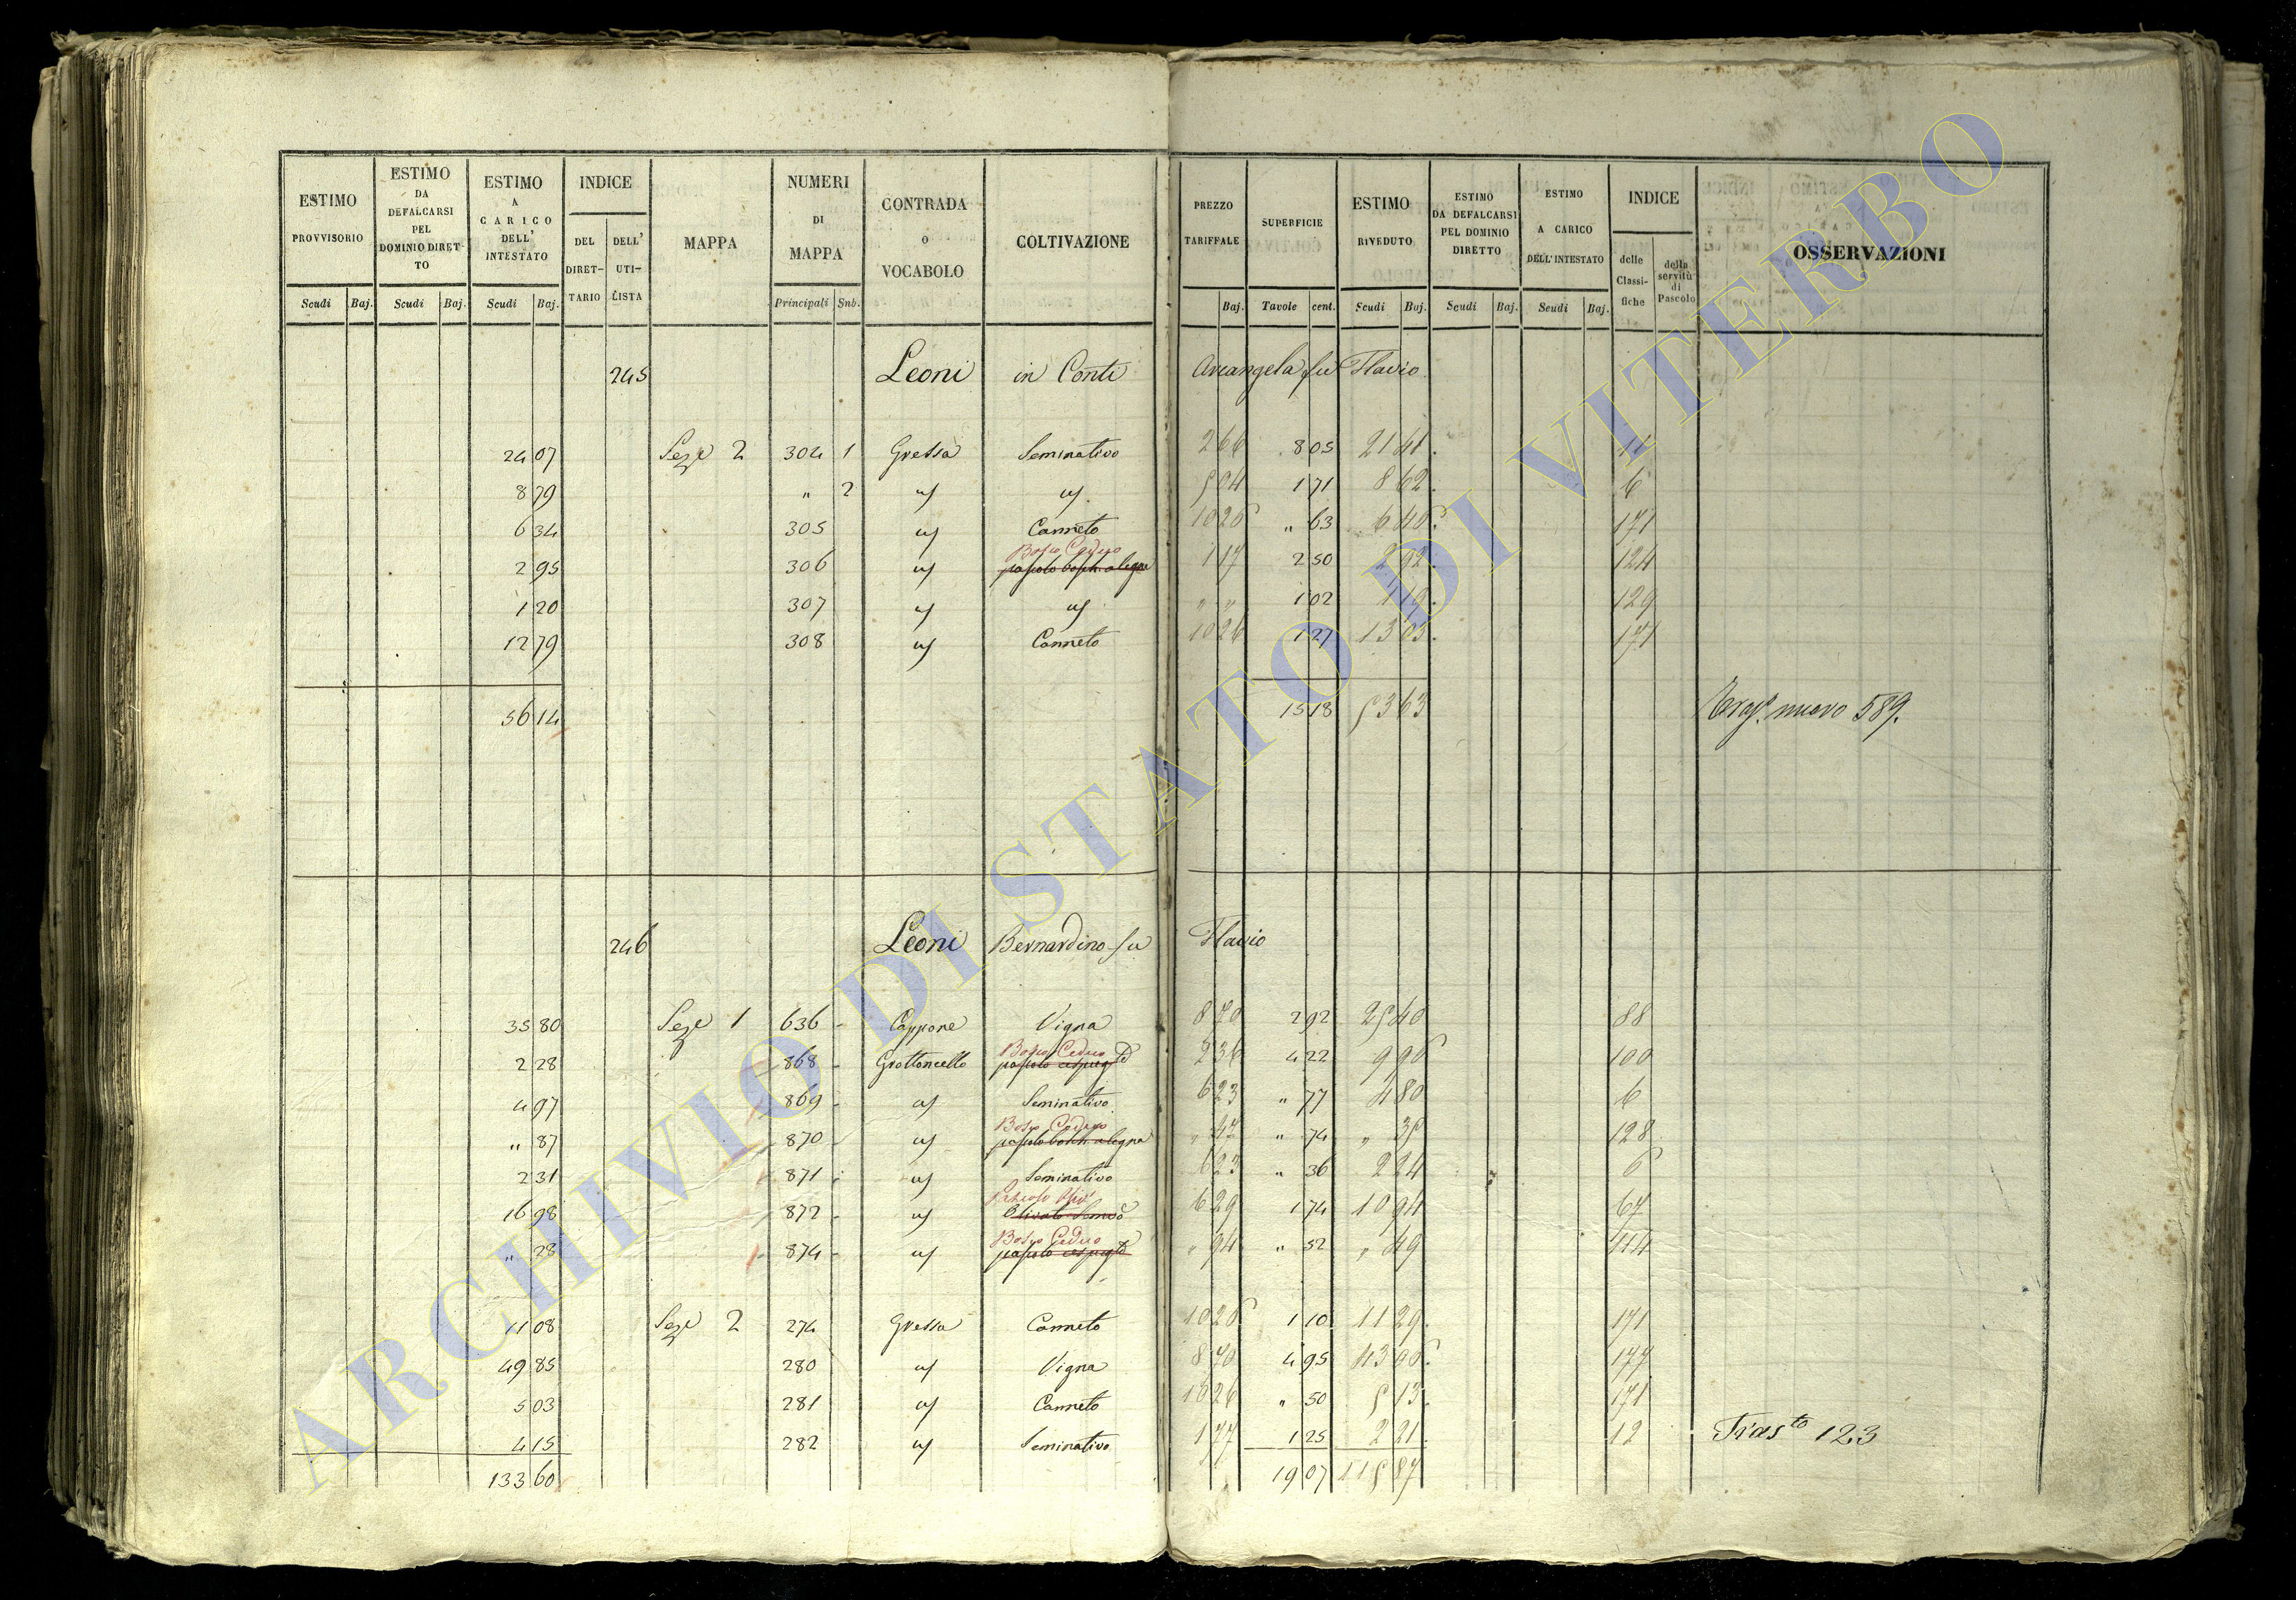 ESTIMO PROVVISORIO Scudi Baj. ESTIMO DA DEFALCARSI PEL DOMINIO DIRET- TO Scudi Baj. ESTIMO A CARICO DELL' INTESTATO Scudi Baj. INDICE DEL DIRET- TARIO DELL' UTI- LISTA MAPPA NUMERI DI MAPPA Principali Sub. CONTRADA O VOCABOLO COLTIVAZIONE PREZZO TARIFFALE Baj. SUPERFICIE Tavole cent. ESTIMO RIVEDUTO Scudi Baj. ESTIMO DA DEFALCARSI PEL DOMINIO DIRETTO Scudi Baj. ESTIMO A CARICO DELL'INTESTATO Scudi Baj. INDICE delle Classi- fiche della servitù di Pascolo OSSERVAZIONI
245 Leoni in Conti Arcangela fu Flavio
24 07 Seze 2 304 1 Gressa Seminativo 2 66 8 05 21 41 11
8 79 " 2 " " 5 04 1 71 8 62 6
6 34 305 " Canneto 10 26 " 63 6 46 171
Bosco Ceduo
2 95 306 " pascolo bosch. a legna 1 17 2 50 2 92 124
1 20 307 " " " " 1 02 1 19 129
12 79 308 " Canneto 10 26 1 27 13 03 171
56 14 15 18 53 63 nuovo 589.
246 Leoni Bernardino fu Flavio
35 80 Seze 1 636 Cappone Vigna 8 70 2 92 25 40 88
Bosco Ceduo
2 28 868 Grottoncello pascolo cespugto 2 36 4 22 9 96 100
4 97 869 " Seminativo 6 23 " 77 4 80 6
Bosco Ceduo
" 87 870 " pascolo bosch a legna " 47 " 74 " 35 128
2 31 871 " Seminativo 6 23 " 36 2 24 6
16 98 872 " Olivato Semo 6 29 1 74 10 94 67
Bosco Ceduo
" 28 874 " pascolo cespugto " 94 " 52 " 49 114
11 08 Seze 2 274 Gressa Canneto 10 26 1 10 11 29 171
49 85 280 " Vigna 8 70 4 95 43 06 177
5 03 281 " Canneto 10 26 " 50 5 13 171
4 15 282 " Seminativo 1 77 1 25 2 21 12 Trasto 123
133 60 19 07 115 87
ARCHIVIO DI STATO DI VITERBO